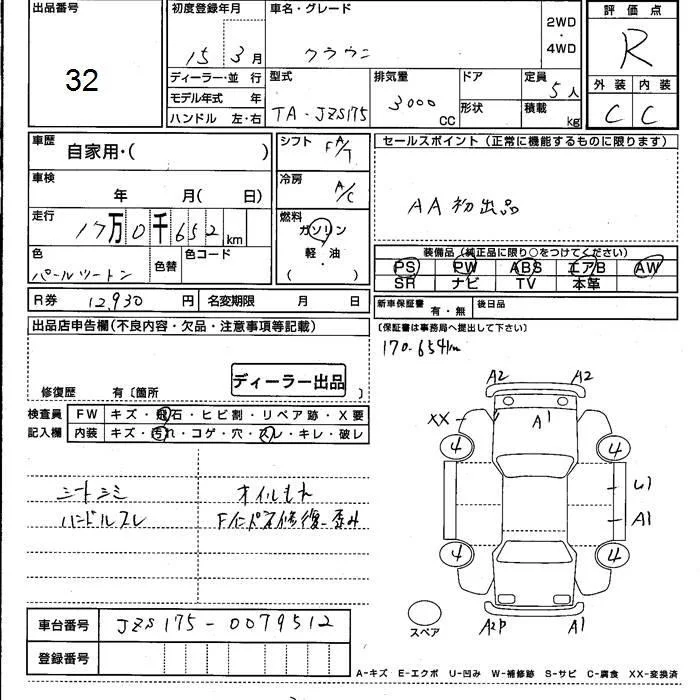 出品番号
32
初度登録年月
15 3月
車名・グレード
クラウン
2WD
・
4WD
評価点
R
外装 内装
C C
ディーラー・並 行
モデル年式 年
ハンドル 左・右
型式
TA-JZS175
排気量
3000
CC
ドア
形状
定員
5人
積載
kg
車歴
自家用・( )
車検
年 月( 日)
走行
17万0千652km
色
パールツートン
色替
色コード
シフト
F A/T
冷房
A/C
燃料
ガソリン
軽・油
( ・ )
セールスポイント(正常に機能するものに限ります)
AA初出品
装備品(純正品に限り○をつけてください)
PS PW ABS エアB AW
SR ナビ TV 本革
R券 12,930 円
名変期限 月 日
新車保証書
有・無
後日品
(保証書は事務局へ提出して下さい)
出品店申告欄(不良内容・欠品・注意事項等記載)
ディーラー出品
修復歴 有〔箇所 〕
170.654km
検査員
記入欄
FW キズ・飛石・ヒビ割・リペア跡・X要
内装 キズ・汚れ・コゲ・穴・スレ・キレ・破レ
シートシミ
ハンドルスレ
オイルもれ
Fインパネ修復_歪み
A2 A2
XX A1
4 4
U1
A1
4 4
スペア
A2P A1
車台番号 JZS175-0079512
登録番号
A-キズ E-エクボ U-凹み W-補修跡 S-サビ C-腐食 XX-変換済